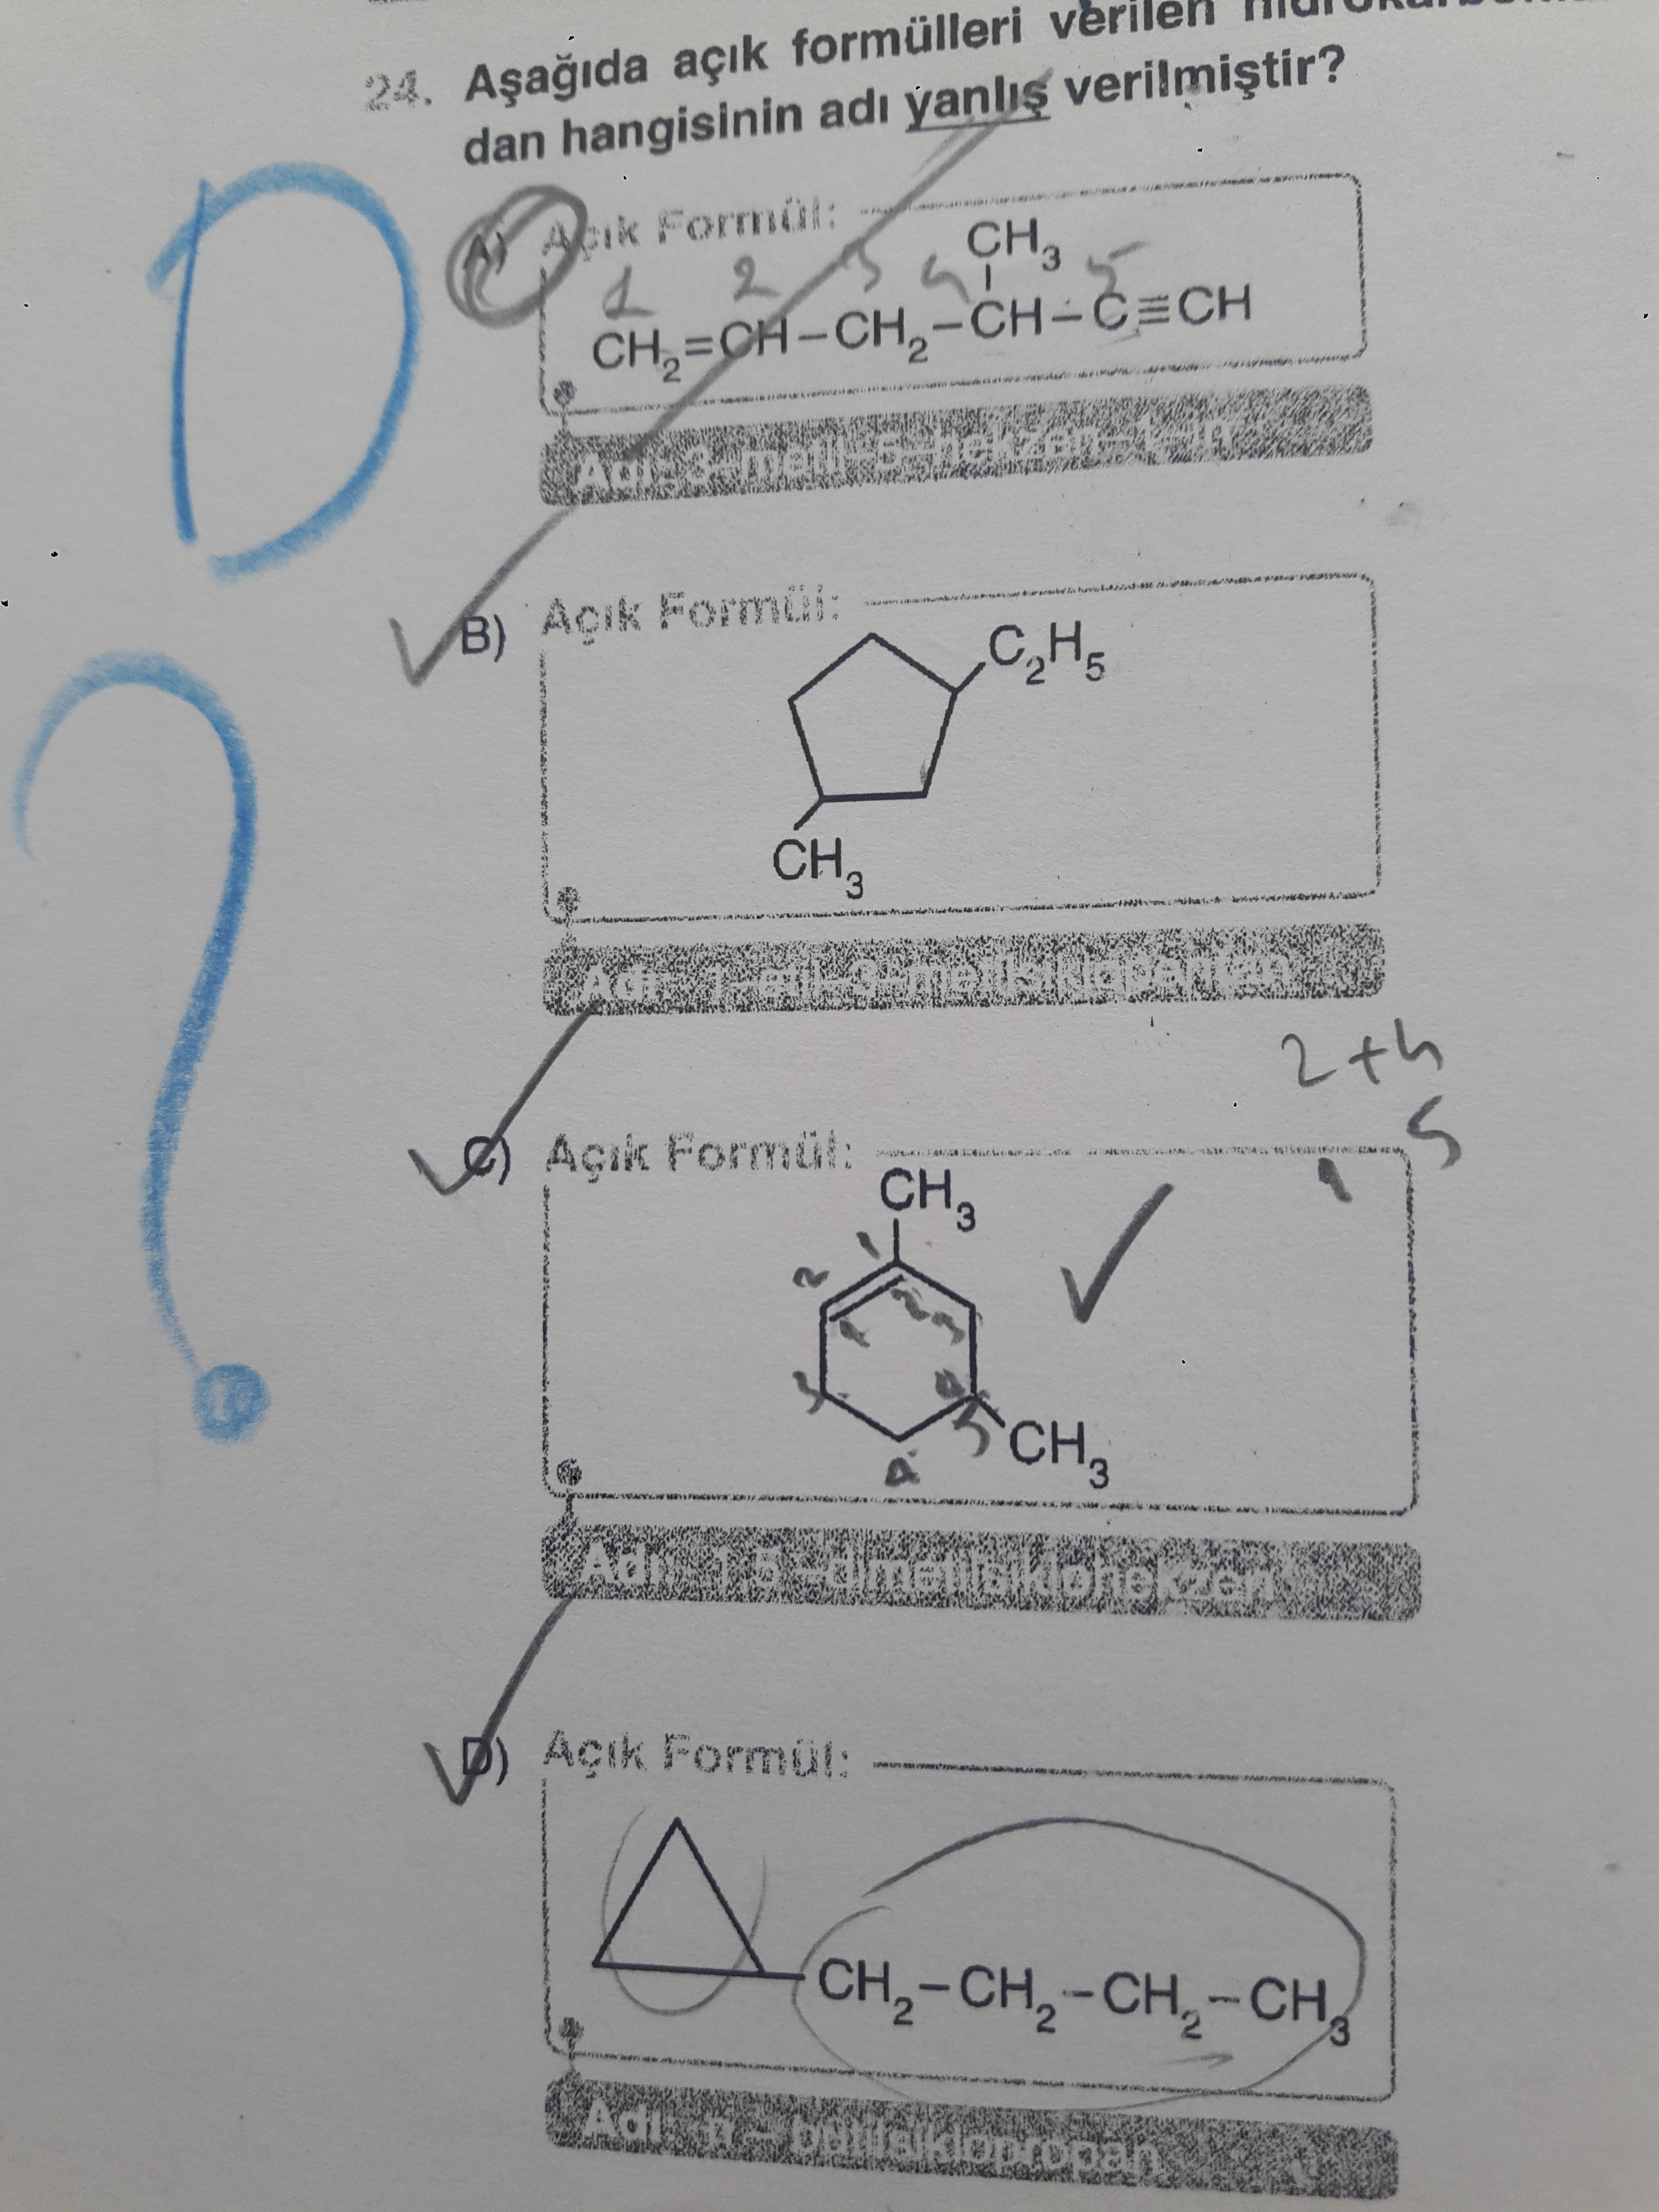 24. Aşağıda açık formülleri verilen
dan hangisinin adı yanlış verilmiştir?
A) Açık Formül:
CH3
1 2 3 4 5
CH2=CH–CH2–CH–C≡CH
Adı: 3-metil-5-hekzen-1-in
B) Açık Formül:
C2H5
CH3
Adı: 1-etil-3-metilsiklopentan
2+4
5
1
C) Açık Formül:
CH3
1
2
2
1
3
3
4
5
CH3
4
Adı: 1,5-dimetilsiklohekzen
D) Açık Formül:
CH2–CH2–CH2–CH3
Adı: n-bütilsiklopropan
D
?